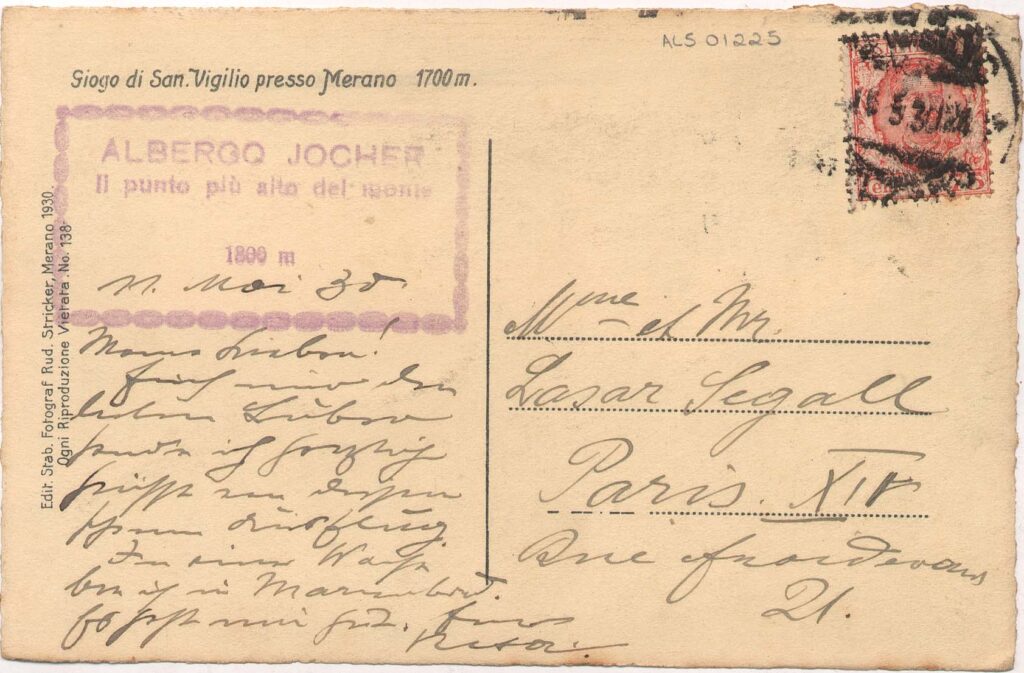 ALS 01225
Giogo di San. Vigilio presso Merano 1700 m.
ALBERGO JOCHER
Il punto più alto del monte
1800 m
Edit. Stab. Fotograf Rud. Stricker, Merano 1930.
Ogni Riproduzione Vietata. No. 138-
11. Mai 30
Euch und den
lieben
sende ich herzliche
Grüsse von diesem
schönen Ausflug
In einer Woche
bin ich in Marienbad.
Es geht mir gut.
Mme et Mr.
Lasar Segall
Paris. XIV
Rue Froidevaux
21.